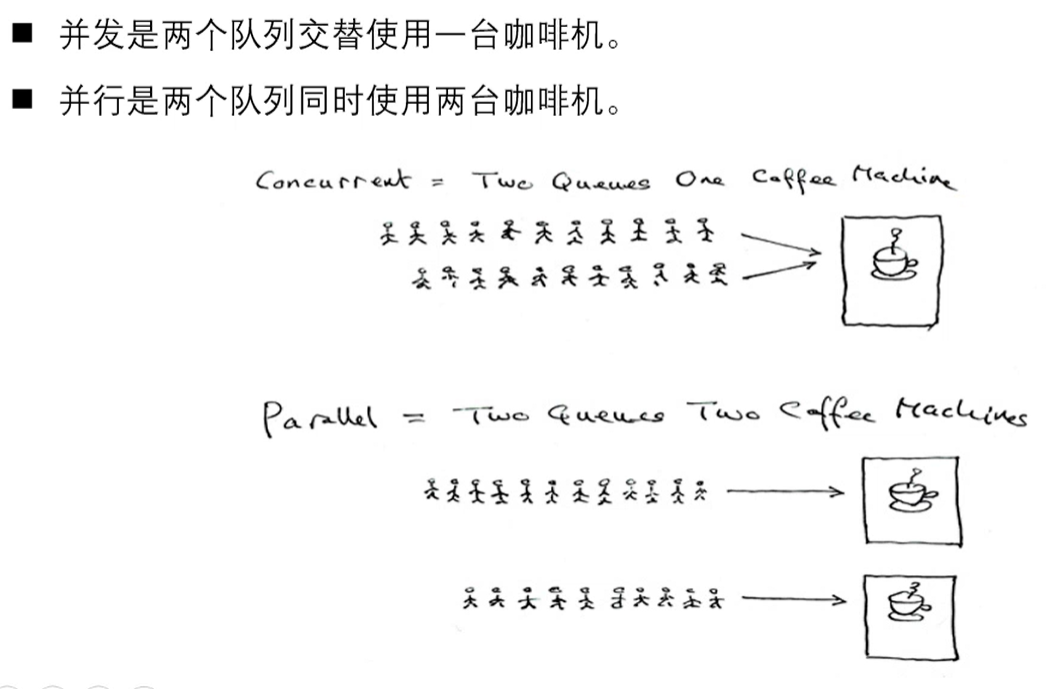 并发是两个队列交替使用一台咖啡机。
并行是两个队列同时使用两台咖啡机。
Concurrent = Two Queues One Coffee Machine
Parallel = Two Queues Two Coffee Machines